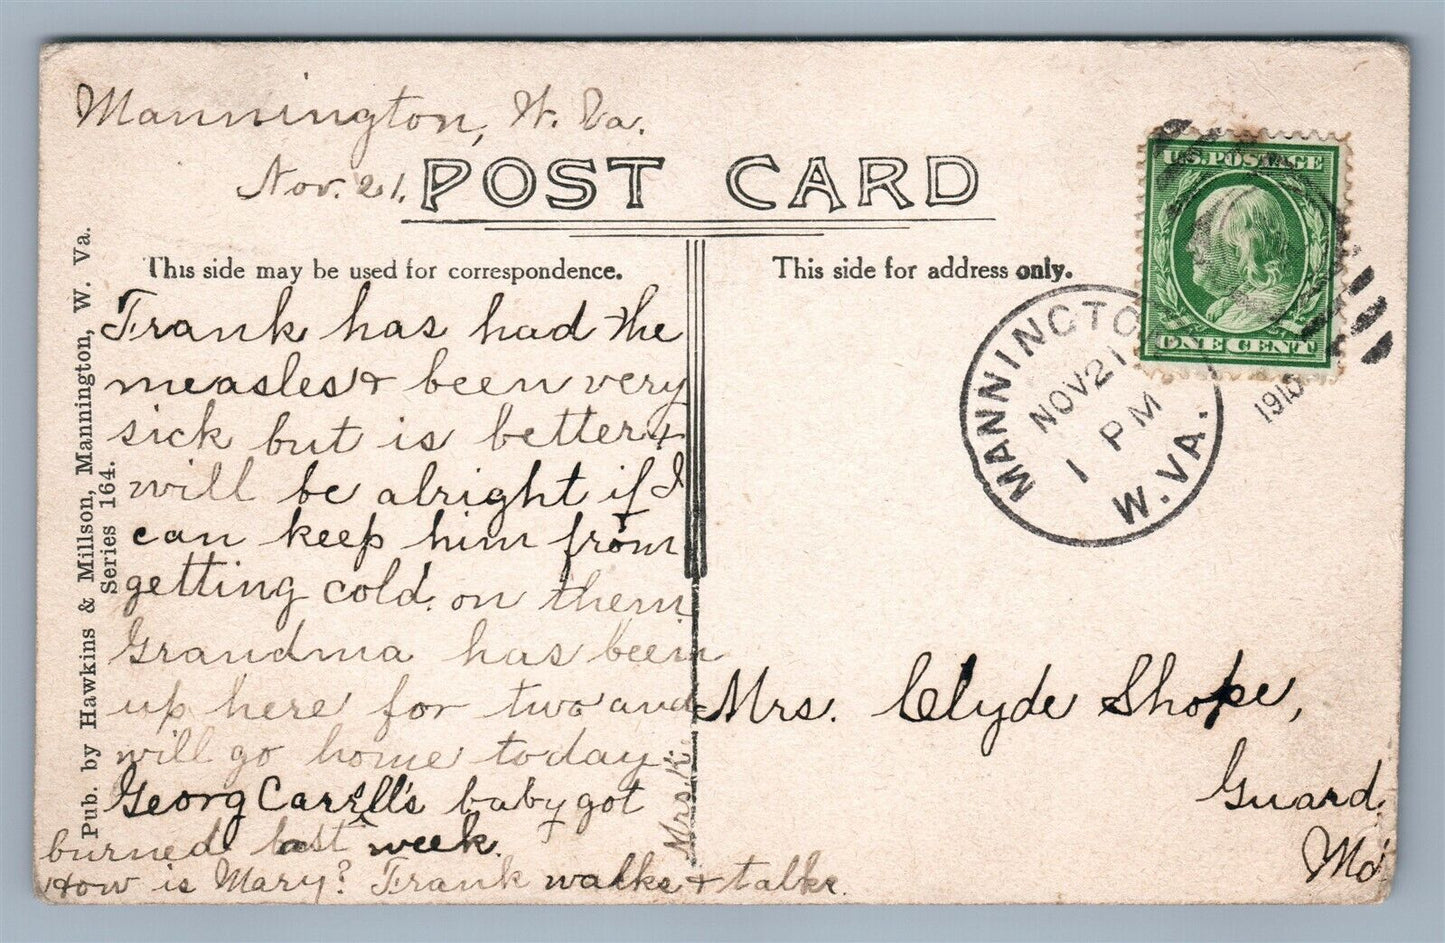 Mannington, W. Va.
Nov. 21.
POST CARD
This side may be used for correspondence.
This side for address only.
Frank has had the
measles & been very
sick but is better &
will be alright if I
can keep him from
getting cold. on them
Grandma has been
up here for two and
will go home today.
Georg Carrll's baby got
burned last week.
How is Mary? Frank walks & talks.
Mrs. K.
Pub. by Hawkins & Millson, Mannington, W. Va.
Series 164.
U.S. POSTAGE
ONE CENT
MANNINGTO
NOV 21
1 PM
W. VA.
1910
Mrs. Clyde Shope,
Guard.
Md